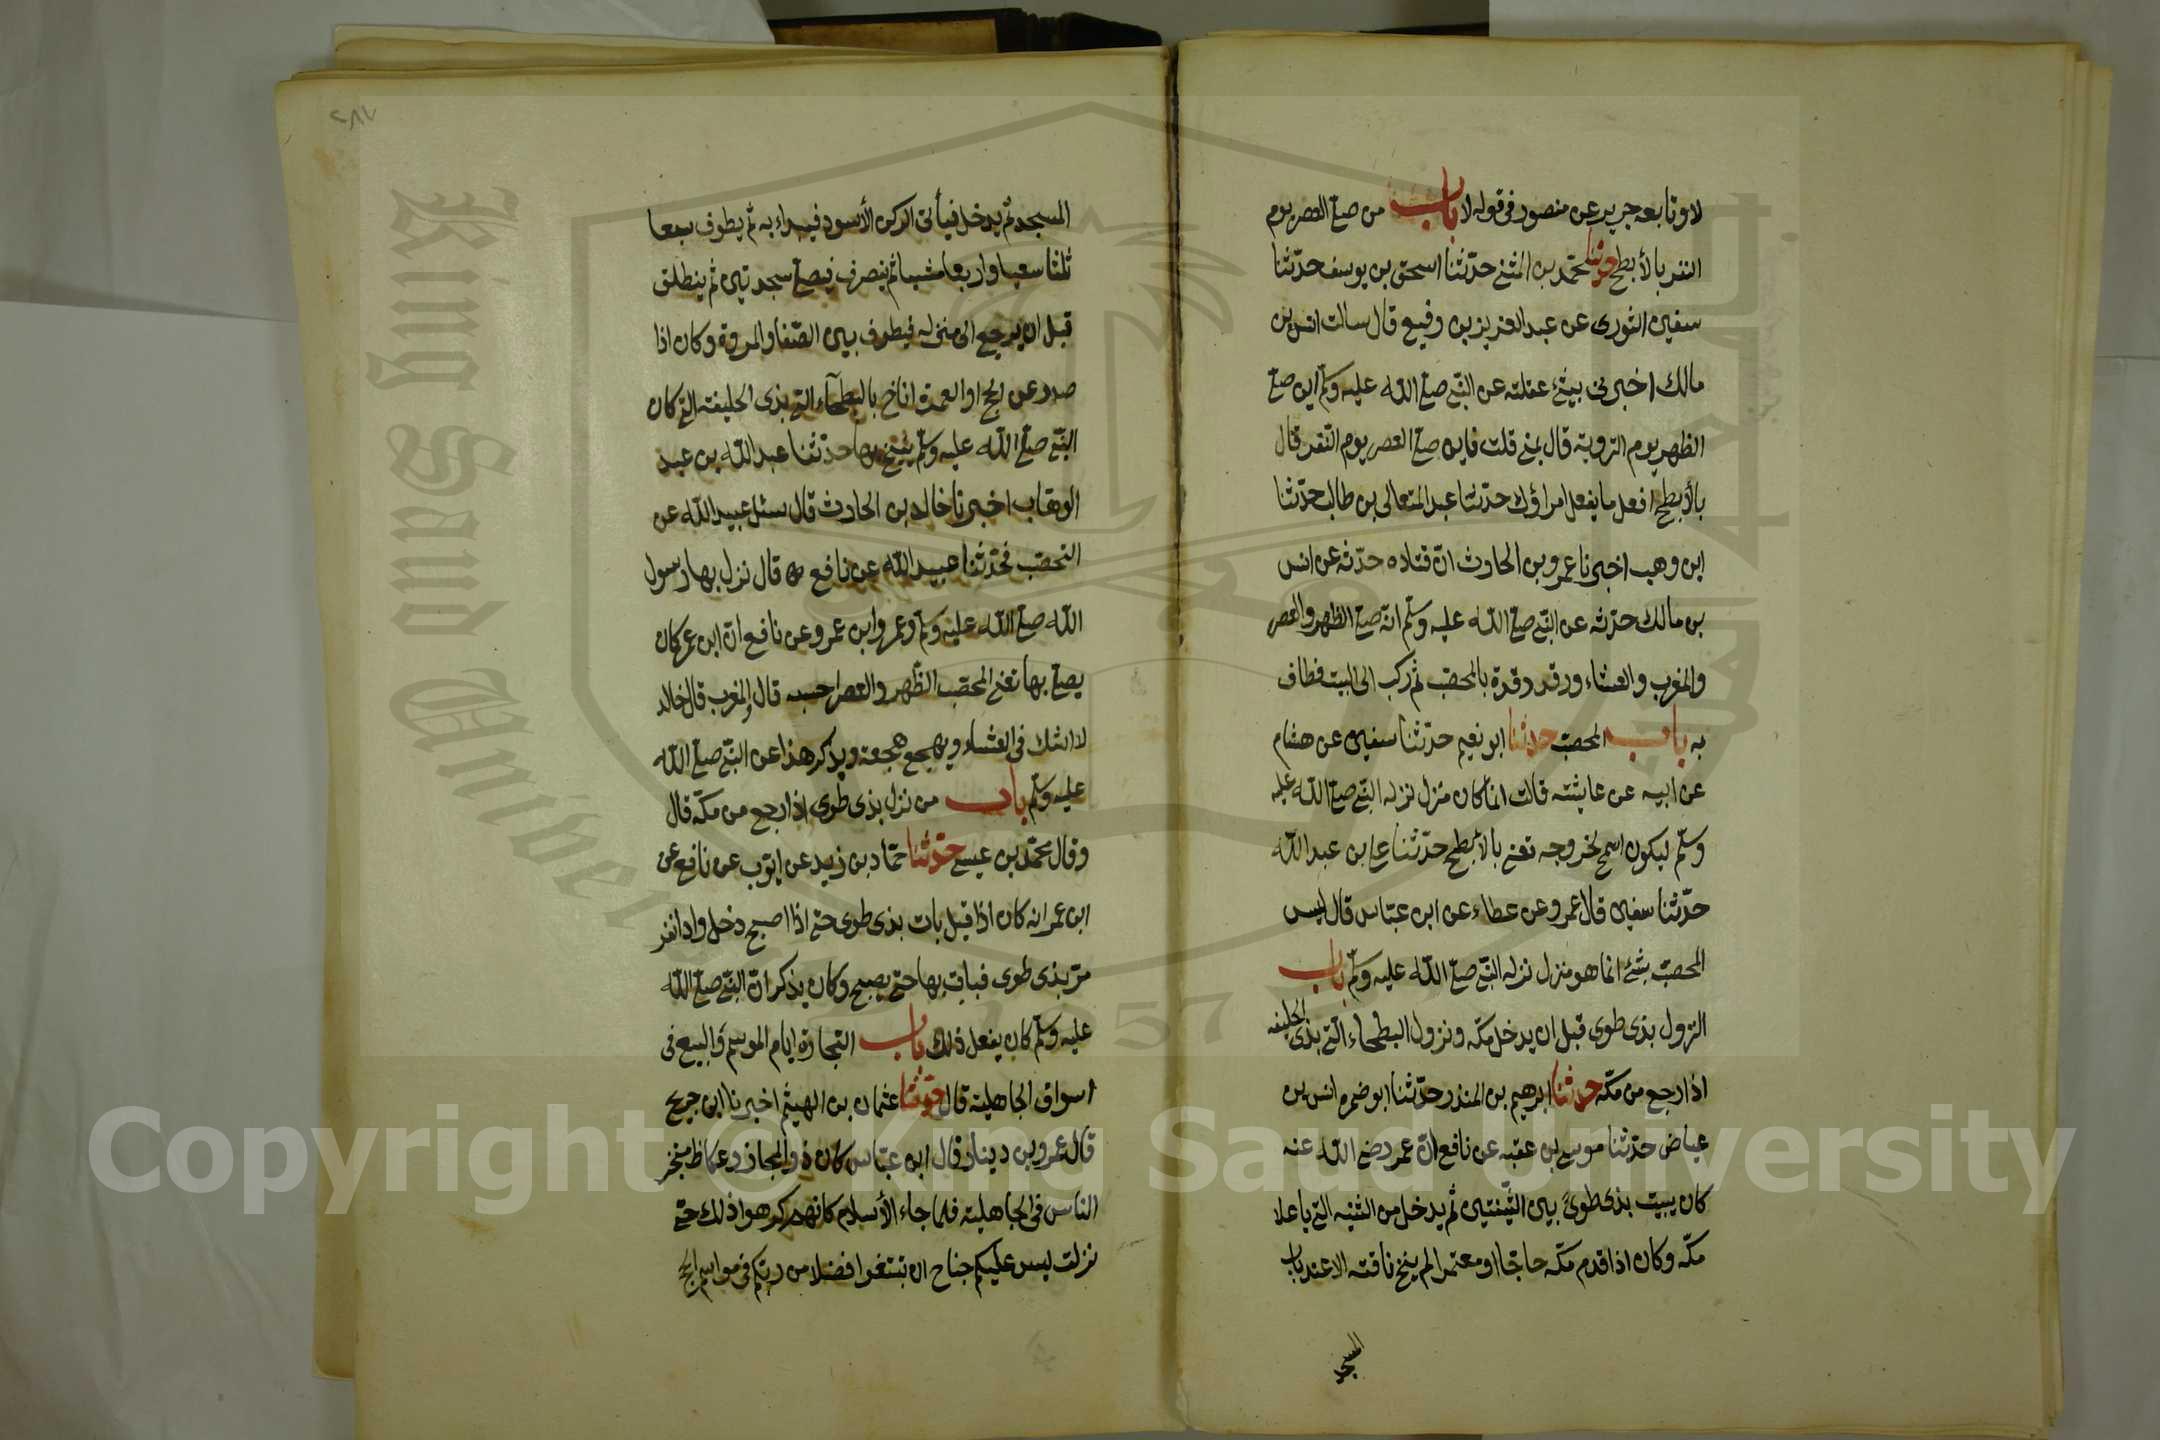 لا وتابعه جرير عن منصور في قوله لا باب من صلى العصر يوم
النفر بالأبطح حدثنا محمد بن المثنى حدثنا اسحق بن يوسف حدثنا
سفين الثورى عن عبد العزيز بن رفيع قال سالت انس بن
مالك اخبرنى بشئ عقلته عن النبي صلى الله عليه وسلم اين صلى
الظهر يوم التروية قال بمنى قلت فاين صلى العصر يوم النفر قال
بالأبطح افعل ما يفعل امراؤك حدثنا عبد المتعالى بن طالب حدثنا
ابن وهب اخبرنا عمرو بن الحارث ان قتاده حدثه عن انس
بن مالك حدثه عن النبي صلى الله عليه وسلم انه صلى الظهر والعصر
والمغرب والعشاء ورقد رقدة بالمحصب ثم ركب الى البيت فطاف
به باب المحصب حدثنا ابو نعيم حدثنا سفين عن هشام
عن ابيه عن عايشه قالت انما كان منزل نزله النبي صلى الله عليه
وسلم ليكون اسمح لخروجه تعنى بالأبطح حدثنا على بن عبد الله
حدثنا سفين قال عمرو عن عطاء عن ابن عباس قال ليس
المحصب بشئ انما هو منزل نزله النبي صلى الله عليه وسلم باب
النزول بذى طوى قبل ان يدخل مكه ونزول البطحاء التى بذى الحليفه
اذا رجع من مكه حدثنا ابرهيم بن المنذر حدثنا ابو ضمره انس بن
عياض حدثنا موسى بن عقبه عن نافع ان عمر رضى الله عنه
كان يبيت بذى طوى بين الثنيتين ثم يدخل من الثنيه التى باعلا
مكه وكان اذا قدم مكه حاجا او معتمرا لم ينخ ناقته الا عند باب
المسجد
٢٨٧
المسجد ثم يدخل فيأتى الركن الأسود فيبداء به ثم يطوف سبعا
ثلثا سعيا واربعا مشيا ثم ينصرف فيصلى سجدتين ثم ينطلق
قبل ان يرجع الى منزله فيطوف بين الصفا والمروة وكان اذا
صدر عن الحج او العمرة اناخ بالبطحاء التى بذى الحليفه التى كان
النبي صلى الله عليه وسلم ينيخ بها حدثنا عبد الله بن عبد
الوهاب اخبرنا خالد بن الحارث قال سئل عبيد الله عن
التحصب فحدثنا عبيد الله عن نافع قال نزل بها رسول
الله صلى الله عليه وسلم وعمر وابن عمر وعن نافع ان ابن عمر كان
يصلى بها تعنى المحصب الظهر والعصر احسبه قال والمغرب قال خالد
لا اشك فى العشاء ويهجع هجعة ويذكر هذا عن النبي صلى الله
عليه وسلم باب من نزل بذى طوى اذا رجع من مكه قال
وقال محمد بن عيسى حدثنا حماد بن زيد عن ايوب عن نافع عن
ابن عمر انه كان اذا قبل بات بذى طوى حتى اذا اصبح دخل واذا نفر
مر بذى طوى فبات بها حتى يصبح وكان يذكر ان النبي صلى الله
عليه وسلم كان يفعل ذلك باب التجارة ايام الموسم والبيع فى
اسواق الجاهلية قال حدثنا عثمان بن الهيثم اخبرنا ابن جريج
قال عمرو بن دينار قال ابن عباس كان ذو المجاز وعكاظ متجر
الناس فى الجاهلية فلما جاء الأسلام كانهم كرهوا ذلك حتى
نزلت ليس عليكم جناح ان تبتغوا فضلا من ربكم فى مواسم الحج
King Saud University
1957
Copyright © King Saud University